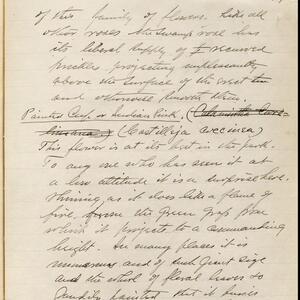 of this family of flowers. Like all
other roses the swamp rose has
its liberal supply of recurved
prickles projecting unpleasantly
above the surface of the
and otherwise smooth stem.
Painted Cup. or Indian Pink.
(Castilleja coccinea)
This flower is at its best in the park.
To any one who has seen it at
a low altitude it is a surprise here.
Shining as it does like a flame of
fire, the green grass from
which it projects to a commanding
height. In many places it is
numerous and of such giant size
and the whole of floral leaves so
painted that it